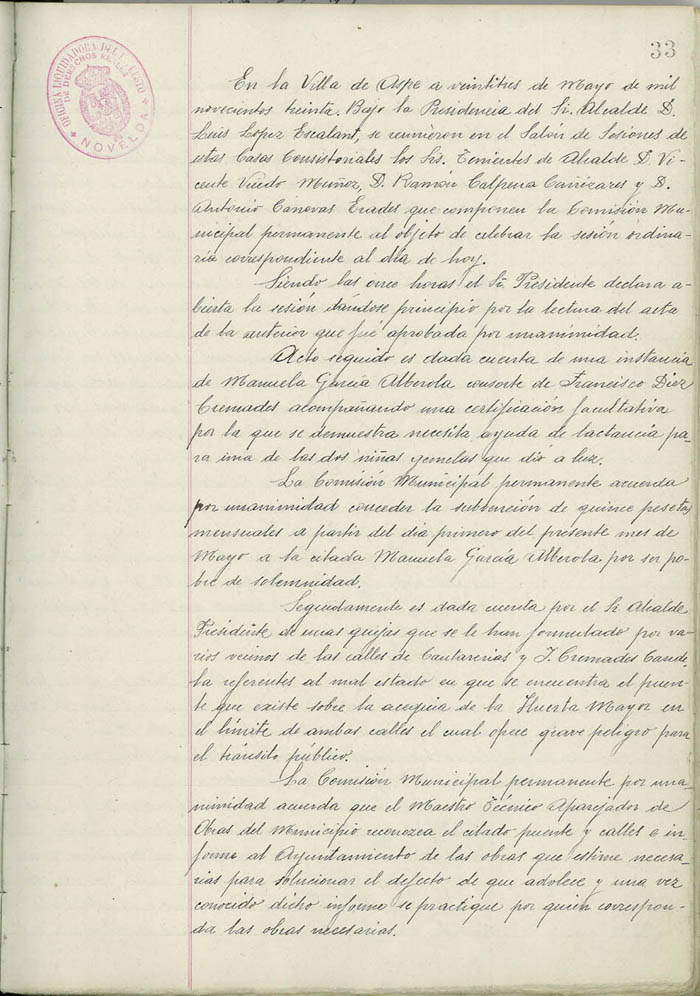 33
OFICINA LIQUIDADORA DEL IMPUESTO
DE DERECHOS REALES
NOVELDA
En la Villa de Aspe a veintitres de Mayo de mil
novecientos treinta. Bajo la Presidencia del Sr. Alcalde D.
Luis López Escalant, se reunieron en el Salón de Sesiones de
estas Casas Consistoriales los Srs. Tenientes de Alcalde D. Vi-
cente Viredo Muñoz, D. Ramón Calpena Cañizares y D.
Antonio Cánovas Erades que componen la Comisión Mu-
nicipal permanente al objeto de celebrar la sesión ordina-
ria correspondiente al día de hoy.
Siendo las once horas el Sr. Presidente declara a-
bierta la sesión dándose principio por la lectura del acta
de la anterior que fué aprobada por unanimidad.
Acto seguido es dada cuenta de una instancia
de Manuela García Alberola consorte de Francisco Diez
Cremades acompañando una certificación facultativa
por la que se demuestra necesita ayuda de lactancia pa-
ra una de las dos niñas gemelas que dió a luz.
La Comisión Municipal permanente acuerda
por unanimidad conceder la subvención de quince pesetas
mensuales a partir del día primero del presente mes de
Mayo a la citada Manuela García Alberola por ser po-
bre de solemnidad.
Seguidamente es dada cuenta por el Sr. Alcalde
Presidente de unas quejas que se le han formulado por va-
rios vecinos de las calles de Cantarerias y J. Cremades Cande-
la referentes al mal estado en que se encuentra el puen-
te que existe sobre la acequia de la Huerta Mayor en
el límite de ambas calles el cual ofrece grave peligro para
el tránsito público.
La Comisión Municipal permanente por una-
nimidad acuerda que el Maestro Técnico Aparejador de
Obras del Municipio reconozca el citado puente y calles e in-
forme al Ayuntamiento de las obras que estime necesa-
rias para solucionar el defecto de que adolece y una vez
conocido dicho informe se practique por quien correspon-
da las obras necesarias.